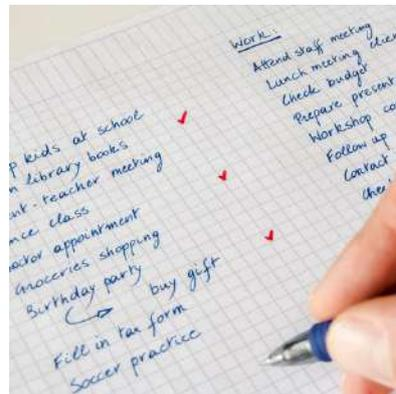 kids at school
library books
teacher meeting
class
appointment
Groceries shopping
Birthday party
buy gift
Fill in tax form
Soccer practice
Work:
Attend staff meeting
Lunch meeting
Check budget
Prepare present
Workshop
Follow up
Contact